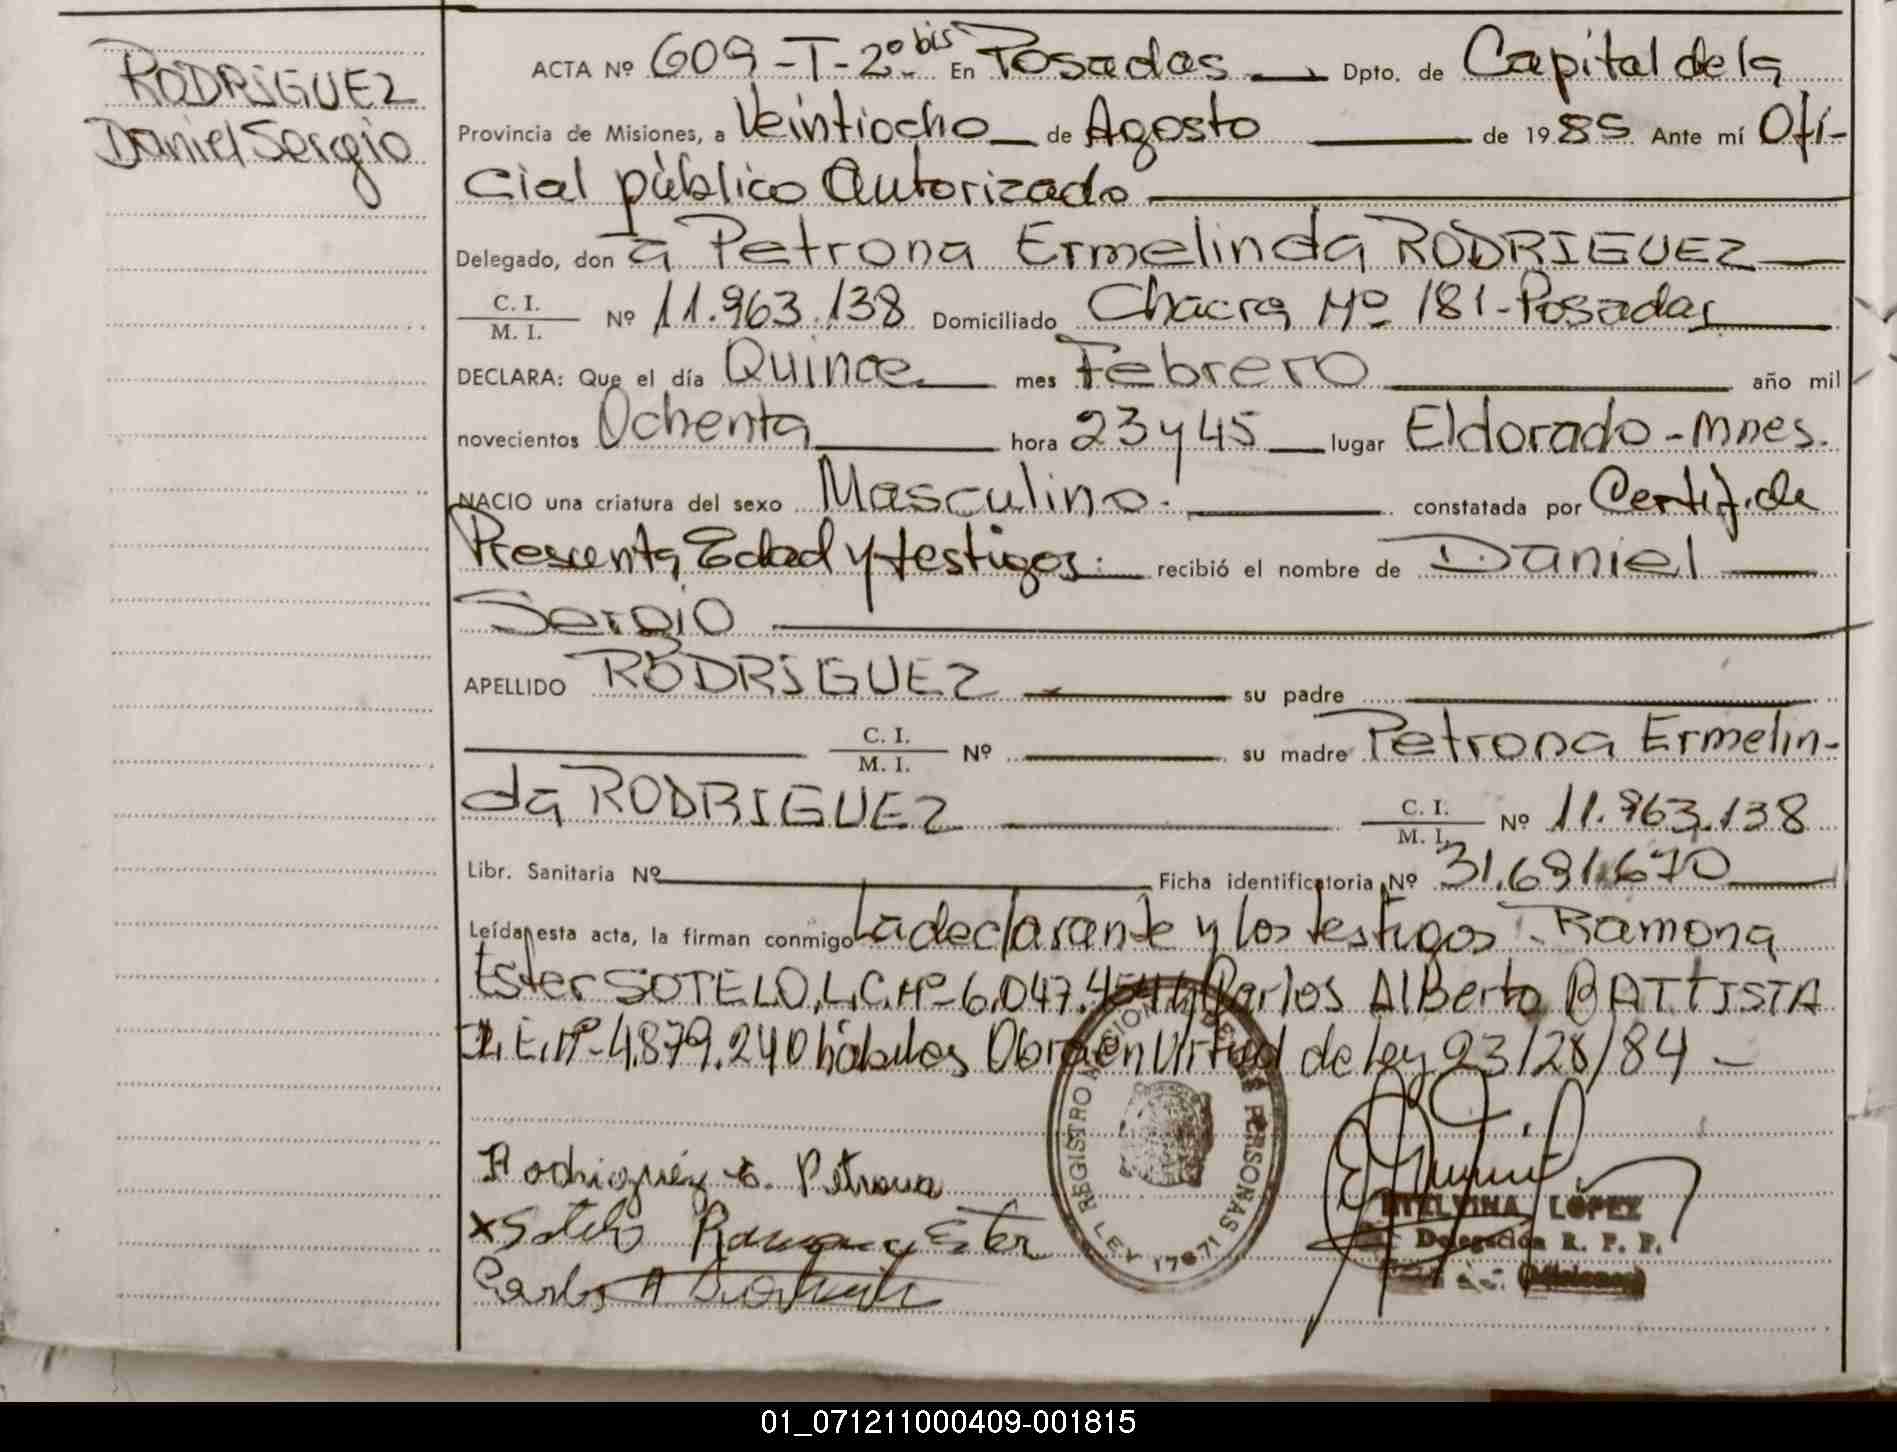 RODRIGUEZ
Daniel Sergio
ACTA Nº 609-T-2º bis En Posadas Dpto. de Capital de la
Provincia de Misiones, a Veintiocho de Agosto de 1985 Ante mí Ofi-
cial público Autorizado
Delegado, don a Petrona Ermelinda RODRIGUEZ
C. I.
M. I. Nº 11.963.138 Domiciliado Chacra Nº 181-Posadas
DECLARA: Que el día Quince mes Febrero año mil
novecientos Ochenta hora 23 y 45 lugar Eldorado-Mnes.
NACIO una criatura del sexo Masculino. constatada por Certif. de
Presunta Edad y testigos. recibió el nombre de Daniel
Sergio
APELLIDO RODRIGUEZ su padre
C. I.
M. I. Nº su madre Petrona Ermelin-
da RODRIGUEZ C. I.
M. I. Nº 11.963.138
Libr. Sanitaria Nº Ficha identificatoria Nº 31.691.670
Leída esta acta, la firman conmigo La declarante y los testigos: Ramona
Ester SOTELO, L.C. Nº 6.047.454 y Carlos Alberto BATTISTA
L.E. Nº 4.879.240 hábiles Obra en Virtud de ley 23/28/84
Rodriguez E. Petrona
x Sotelo Ramona Ester
Carlos A
REGISTRO NACIONAL DE LAS PERSONAS
LEY 17671
ETELVINA LOPEZ
Delegación R. P. P.
(Misiones)
01_071211000409-001815